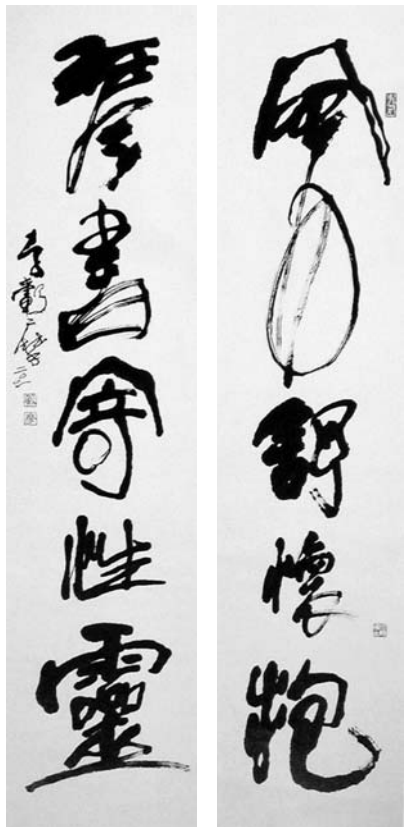 風月舒懷抱
琴書寄性靈